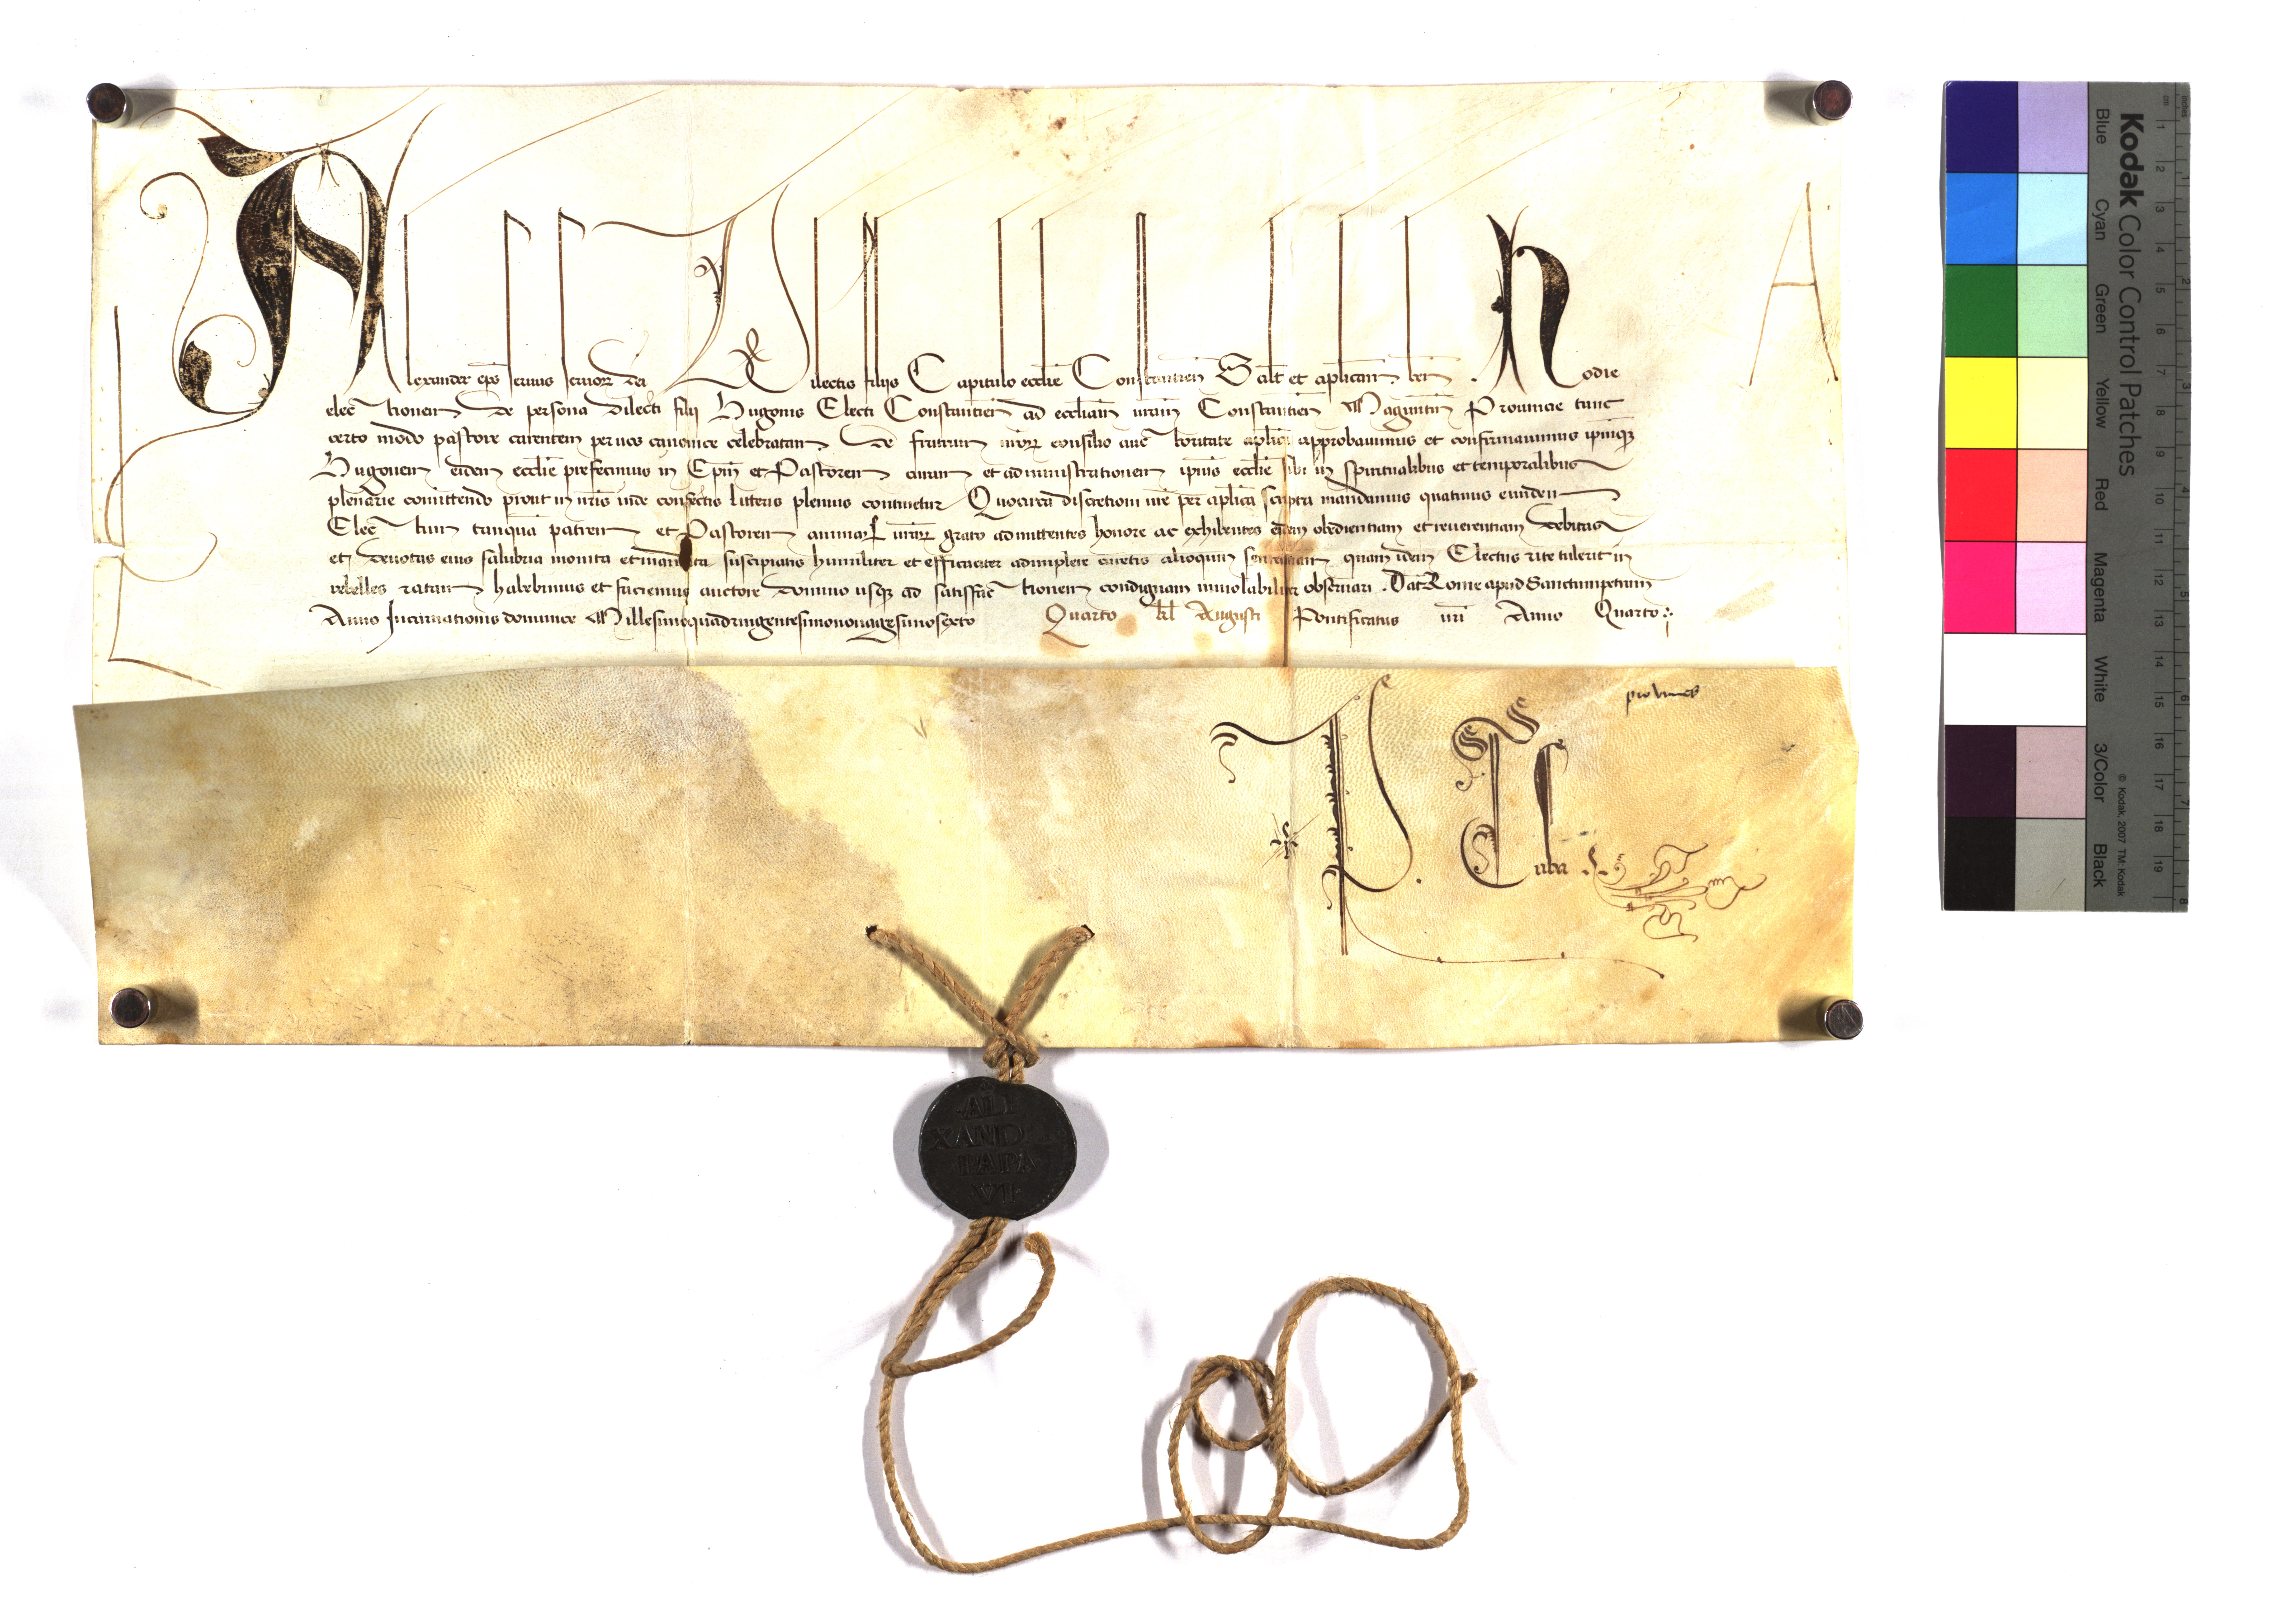 Alexander eps seruus seruoꝝ dei Dilectis filijs Capitulo ecclie Constantien Salt et aplicam ben. Hodie
electionem de persona dilecti filij Hugonis Electi Constantien ad eccliam uram Constantien Maguntin Prouincie tunc
certo modo pastore carentem per uos canonice celebratam de fratrum nroꝝ consilio auctoritate aplica approbauimus et confirmauimus ipmqꝫ
Hugonem eidem ecclie prefecimus in Epm et Pastorem curam et administrationem ipius ecclie sibi in spiritualibus et temporalibus
plenarie comittendo prout in nris inde confectis litteris plenius continetur Quocirca discretioni ure per aplica scripta mandamus quatinus eundem
Electum tanqua patrem et Pastorem animaꝝ uraꝝ grato admittentes honore ac exhibentes eidem obedientiam et reuerentiam debitas
et deuotas eius salubria monita et mandata suscipiatis humiliter et efficaciter adimplere curetis alioquin sententiam quam idem Electus rite tulerit in
rebelles ratam habebimus et faciemus auctore domino usqꝫ ad satisfactionem condignam inuiolabiliter obseruari. Dat Rome apud Sanctumpetrum
Anno Incarnationis dominice Millesimoquadringentesimononagesimosexto Quarto kl Augusti Pontificatus nri Anno Quarto
A
L
ALE
XANDER
PAPA
VI
Kodak Color Control Patches
Blue Cyan Green Yellow Red Magenta White 3/Color Black
© Kodak, 2007 TM: Kodak
cm 1 2 3 4 5 6 7 8 9 10 11 12 13 14 15 16 17 18 19
inches 1 2 3 4 5 6 7 8